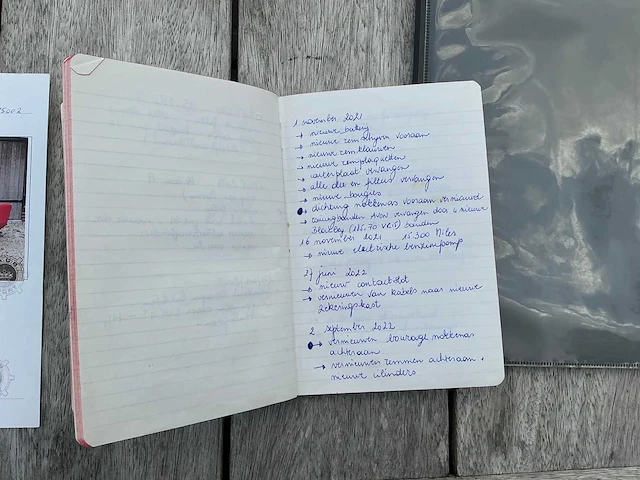 5002
1 november 2021
→ nieuwe batterij
→ nieuwe remschijven vooraan
→ nieuwe remklauwen
→ nieuwe remplaquetten
→ carterplaat vervangen
→ alle olie en filters vervangen
→ nieuwe bougies
→ dichting nokkenas vooraan vernieuwd
→ vervangen door 4 nieuwe
(215.70 VR15) banden
16 november 2021 15.300 Miles
→ nieuwe electrische benzinepomp
17 juni 2022
→ nieuw contactslot
→ vernieuwen van kabels naar nieuwe
zekeringskast
2 september 2022
→ vernieuwen bourage nokkenas
achteraan
→ vernieuwen remmen achteraan +
nieuwe cilinders